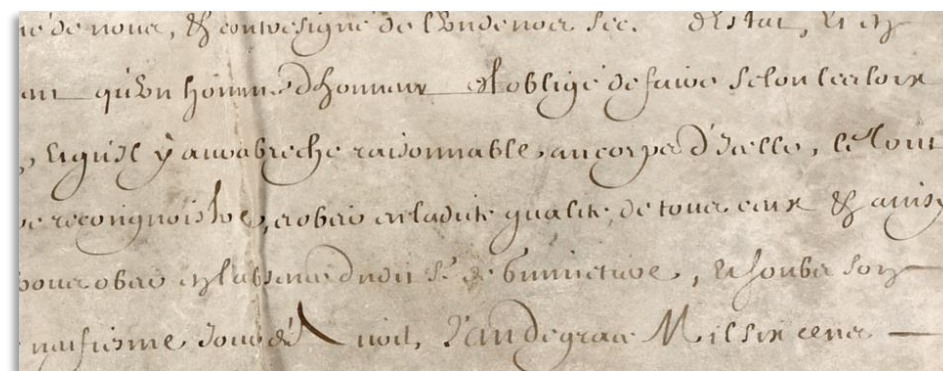 de nous, & contresigné de l'un de nos sec. d'Estat, Et
qu'Vn homme d'honneur est obligé de faire selon les loix
Et qu'Il y aura breche raisonnable, au corps d'Icelle, le tout
recongnoistre, et obeir en ladite qualité, de tous ceux &
pour obeir en l'absence dudit Sr. de, Et soubs son
naufiesme Jour d' l'an de grace Mil six cens